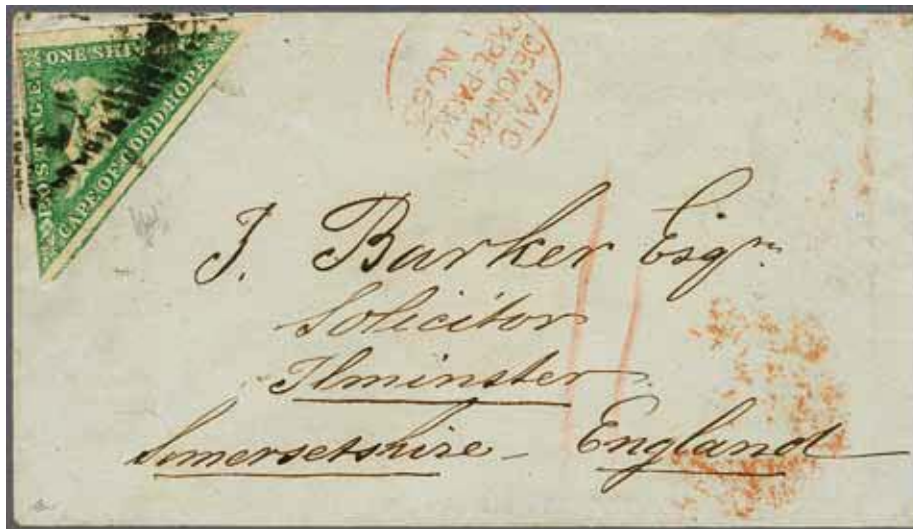 ONE SHILLING
POSTAGE
CAPE OF GOOD HOPE
PAID
DEVONPORT
CAPE PACKET
NO
J. Barker Esqre
Solicitor
Ilminster
Somersetshire - England